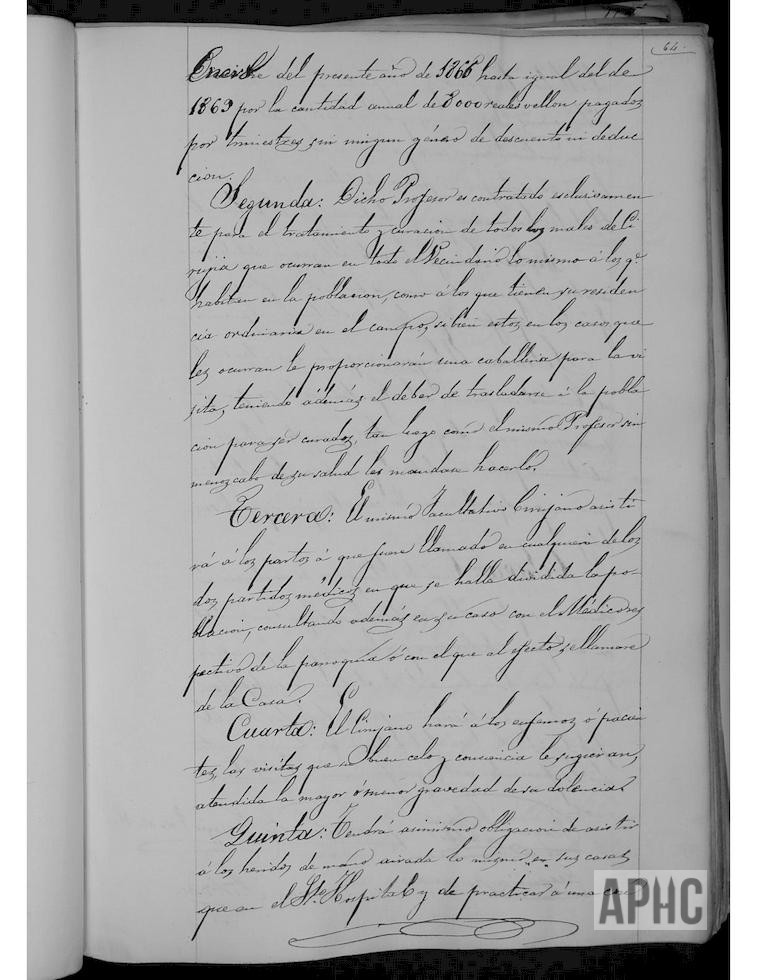 64.
del presente año de 1866 hasta igual del de
1869 por la cantidad anual de 8000 reales vellon pagados
por trimestres, sin ningun género de descuento ni deduc
cion.
Segunda: Dicho Profesor es contratado esclusivamen
te para el tratamiento y curacion de todos los males de Ci
rujia que ocurran en todo el Vecindario lo mismo á los q.e
habitan en la poblacion, como á los que tienen su residen
cia ordinaria en el campo, si bien estos, en los casos que
les ocurran le proporcionarán una caballeria para la vi
sita, teniendo además el deber de trasladarse á la pobla
cion para ser curados, tan luego como el mismo Profesor sin
menoscabo de su salud les mandase hacerlo.
Tercera: El mismo Facultativo Cirujano asisti
rá á los partos á que fuere llamado en cualquiera de los
dos partidos médicos en que se halla dividida la po-
blacion, consultando además en su caso con el Médico res
pectivo de la parroquia ó con el que al efecto se llamare
de la Casa.
Cuarta: El Cirujano hará á los enfermos ó pacien
tes, las visitas que su buen celo y conciencia le sugieran,
atendida la mayor ó menor gravedad de su dolencia.
Quinta: Tendrá asimismo obligacion de asistir
á los heridos de mano airada lo mismo en sus casas
que en el Sto. Hospital y de practicar á una con
APHC